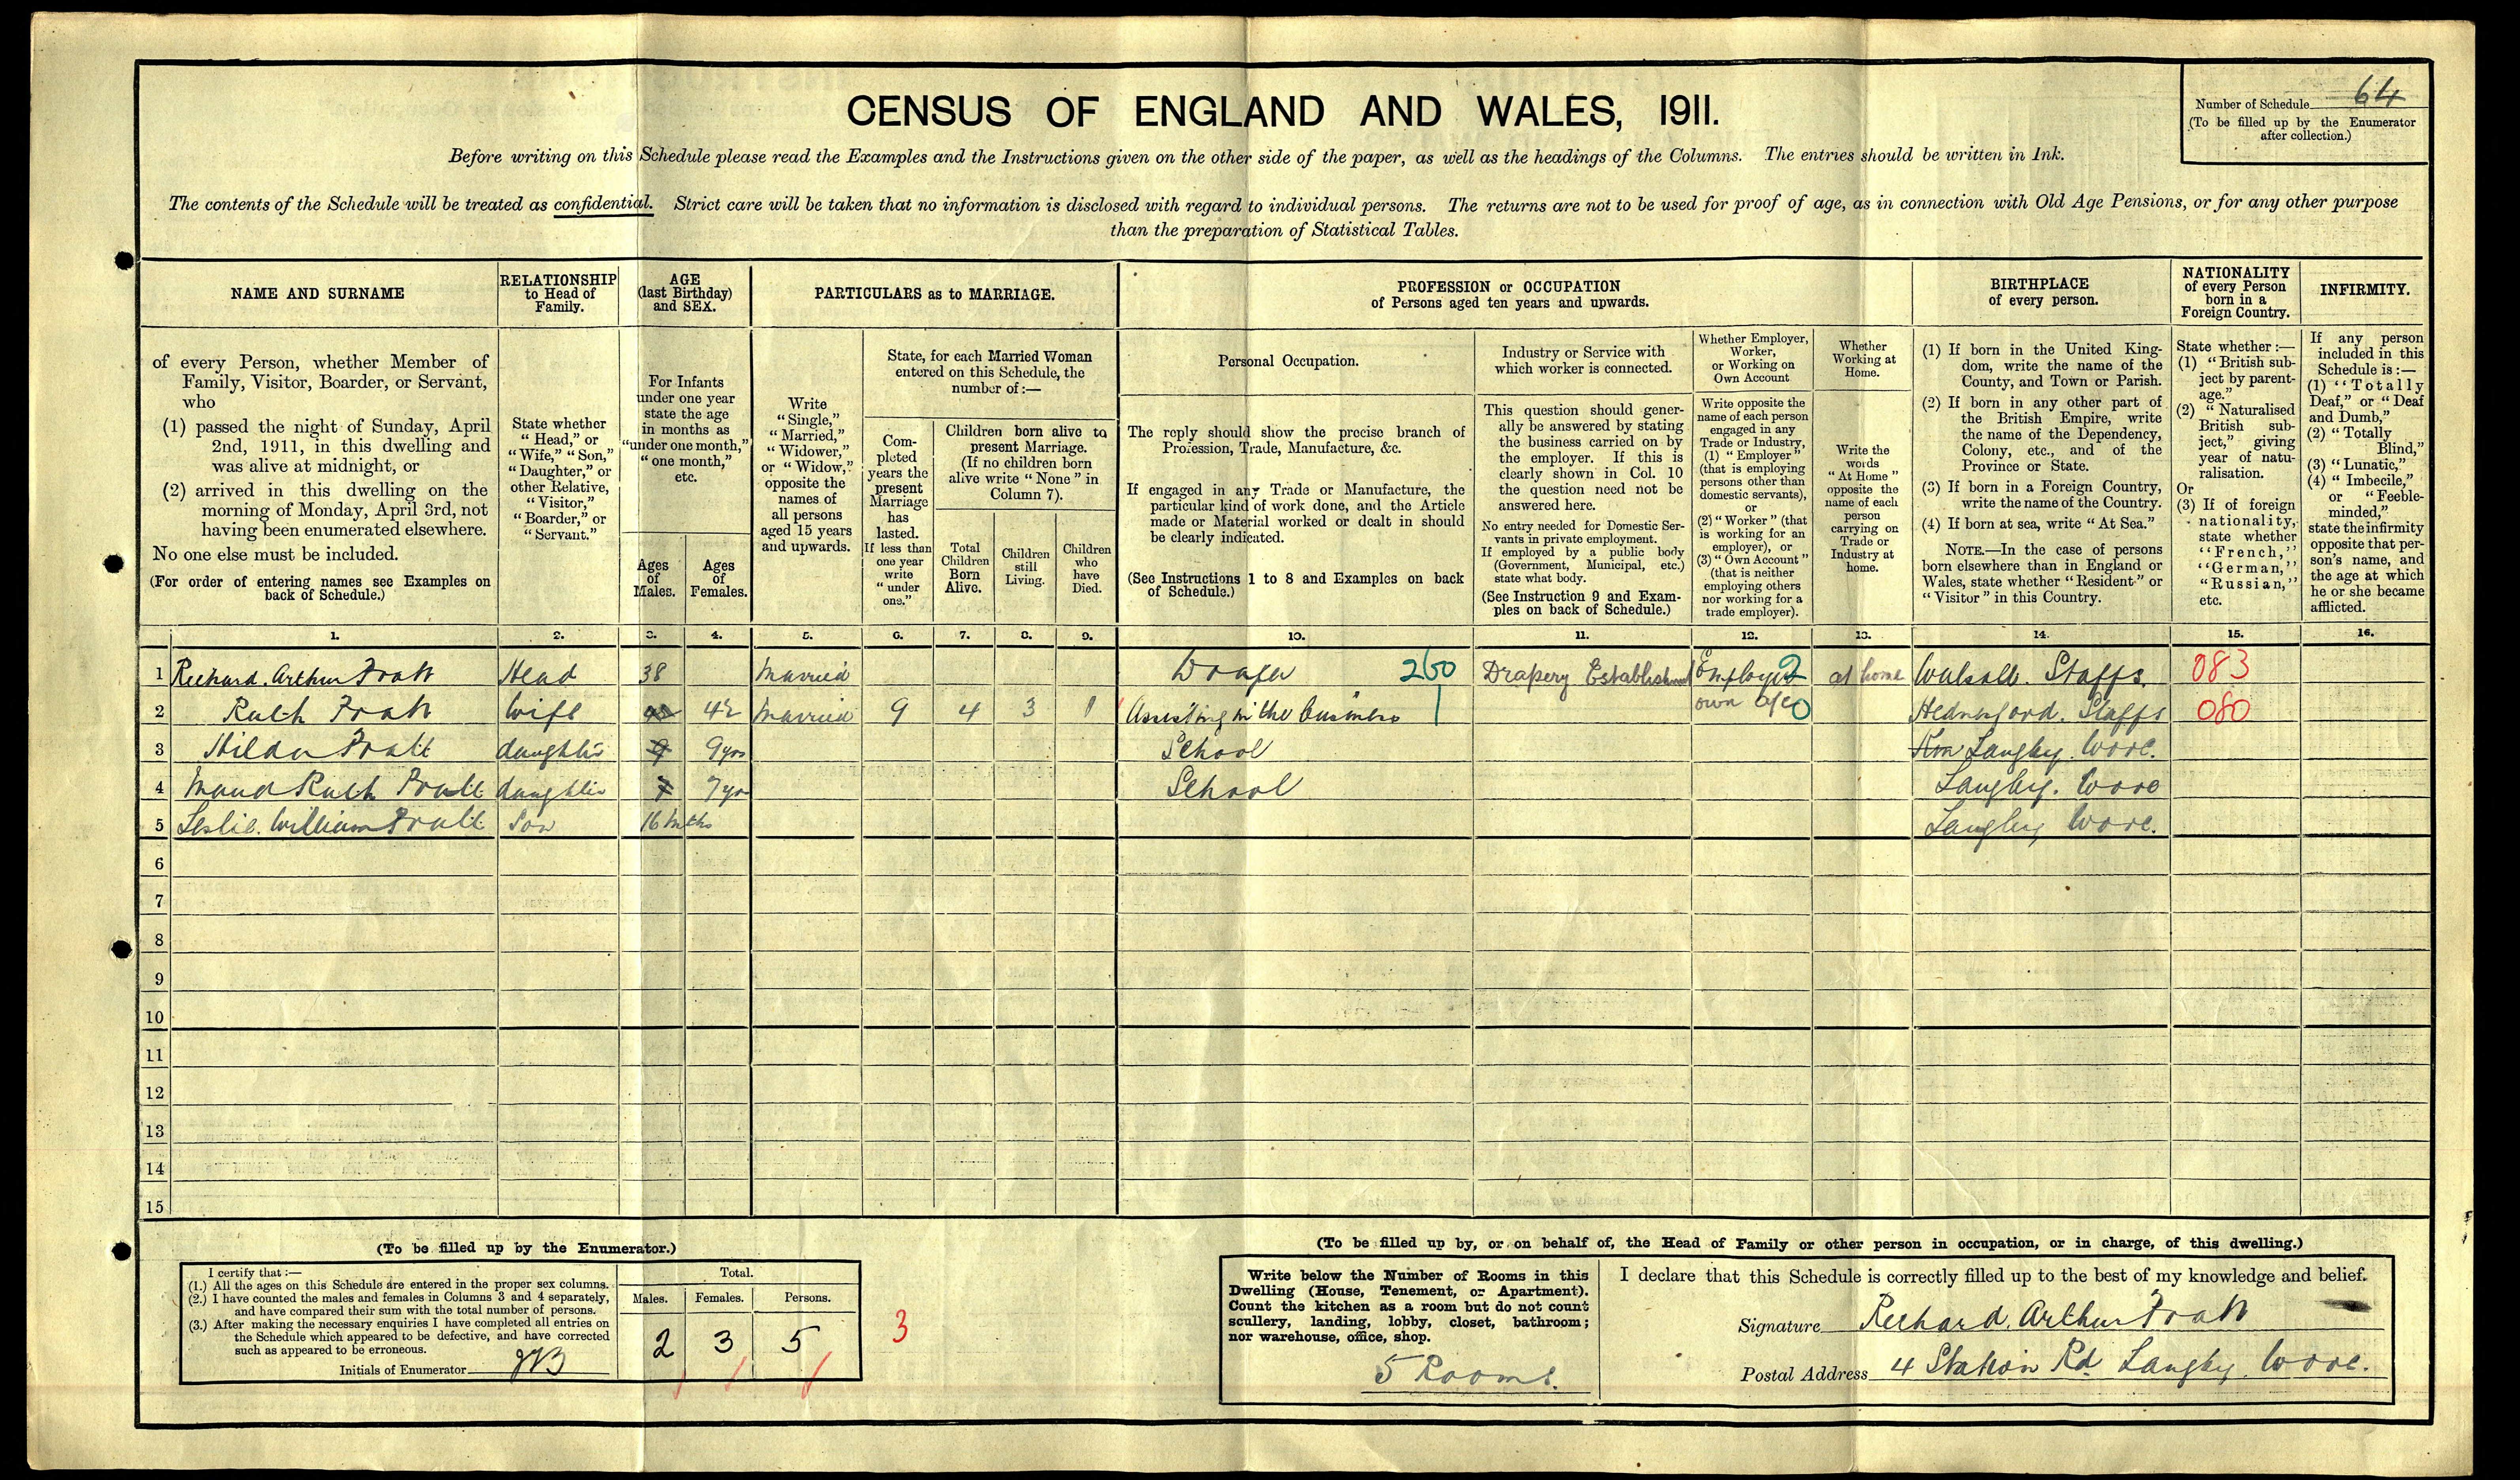 CENSUS OF ENGLAND AND WALES, 1911.
Number of Schedule 64
(To be filled up by the Enumerator
after collection.)
Before writing on this Schedule please read the Examples and the Instructions given on the other side of the paper, as well as the headings of the Columns. The entries should be written in Ink.
The contents of the Schedule will be treated as confidential. Strict care will be taken that no information is disclosed with regard to individual persons. The returns are not to be used for proof of age, as in connection with Old Age Pensions, or for any other purpose
than the preparation of Statistical Tables.
NAME AND SURNAME
of every Person, whether Member of
Family, Visitor, Boarder, or Servant,
who
(1) passed the night of Sunday, April
2nd, 1911, in this dwelling and
was alive at midnight, or
(2) arrived in this dwelling on the
morning of Monday, April 3rd, not
having been enumerated elsewhere.
No one else must be included.
(For order of entering names see Examples on
back of Schedule.)
RELATIONSHIP
to Head of
Family.
State whether
"Head," or
"Wife," "Son,"
"Daughter," or
other Relative,
"Visitor,"
"Boarder," or
"Servant."
AGE
(last Birthday)
and SEX.
For Infants
under one year
state the age
in months as
"under one month,"
"one month,"
etc.
Ages
of
Males.
Ages
of
Females.
PARTICULARS as to MARRIAGE.
Write
"Single,"
"Married,"
"Widower,"
or "Widow,"
opposite the
names of
all persons
aged 15 years
and upwards.
State, for each Married Woman
entered on this Schedule, the
number of:—
Com-
pleted
years the
present
Marriage
has
lasted.
If less than
one year
write
"under
one."
Children born alive to
present Marriage.
(If no children born
alive write "None" in
Column 7).
Total
Children
Born
Alive.
Children
still
Living.
Children
who
have
Died.
PROFESSION or OCCUPATION
of Persons aged ten years and upwards.
Personal Occupation.
The reply should show the precise branch of
Profession, Trade, Manufacture, &c.
If engaged in any Trade or Manufacture, the
particular kind of work done, and the Article
made or Material worked or dealt in should
be clearly indicated.
(See Instructions 1 to 8 and Examples on back
of Schedule.)
Industry or Service with
which worker is connected.
This question should gener-
ally be answered by stating
the business carried on by
the employer. If this is
clearly shown in Col. 10
the question need not be
answered here.
No entry needed for Domestic Ser-
vants in private employment.
If employed by a public body
(Government, Municipal, etc.)
state what body.
(See Instruction 9 and Exam-
ples on back of Schedule.)
Whether Employer,
Worker,
or Working on
Own Account
Write opposite the
name of each person
engaged in any
Trade or Industry,
(1) "Employer"
(that is employing
persons other than
domestic servants),
or
(2) "Worker" (that
is working for an
employer), or
(3) "Own Account"
(that is neither
employing others
nor working for a
trade employer).
Whether
Working at
Home.
Write the
words
"At Home"
opposite the
name of each
person
carrying on
Trade or
Industry at
home.
BIRTHPLACE
of every person.
(1) If born in the United King-
dom, write the name of the
County, and Town or Parish.
(2) If born in any other part of
the British Empire, write
the name of the Dependency,
Colony, etc., and of the
Province or State.
(3) If born in a Foreign Country,
write the name of the Country.
(4) If born at sea, write "At Sea."
NOTE.—In the case of persons
born elsewhere than in England or
Wales, state whether "Resident" or
"Visitor" in this Country.
NATIONALITY
of every Person
born in a
Foreign Country.
State whether:—
(1) "British sub-
ject by parent-
age."
(2) "Naturalised
British sub-
ject," giving
year of natu-
ralisation.
Or
(3) If of foreign
nationality,
state whether
"French,"
"German,"
"Russian,"
etc.
INFIRMITY.
If any person
included in this
Schedule is:—
(1) "Totally
Deaf," or "Deaf
and Dumb,"
(2) "Totally
Blind,"
(3) "Lunatic,"
(4) "Imbecile,"
or "Feeble-
minded,"
state the infirmity
opposite that per-
son's name, and
the age at which
he or she became
afflicted.
1. 2. 3. 4. 5. 6. 7. 8. 9. 10. 11. 12. 13. 14. 15. 16.
1 Richard. Arthur Pratt Head 38 Married Draper 260 Drapery Establishment Employer 2 at home Walsall. Staffs. 083
2 Ruth Pratt Wife 42 Married 9 4 3 1 Assisting in the business 1 own a/c 0 Hednesford. Staffs 080
3 Hilda Pratt daughter 9 9yrs School Langley. Worc.
4 Maud Ruth Pratt daughter 7 7yrs School Langley. Worc
5 Leslie. William Pratt Son 16 mths Langley Worc.
6
7
8
9
10
11
12
13
14
15
(To be filled up by the Enumerator.)
I certify that:—
(1.) All the ages on this Schedule are entered in the proper sex columns.
(2.) I have counted the males and females in Columns 3 and 4 separately,
and have compared their sum with the total number of persons.
(3.) After making the necessary enquiries I have completed all entries on
the Schedule which appeared to be defective, and have corrected
such as appeared to be erroneous.
Initials of Enumerator
Total.
Males. Females. Persons.
2 3 5
3
(To be filled up by, or on behalf of, the Head of Family or other person in occupation, or in charge, of this dwelling.)
Write below the Number of Rooms in this
Dwelling (House, Tenement, or Apartment).
Count the kitchen as a room but do not count
scullery, landing, lobby, closet, bathroom;
nor warehouse, office, shop.
5 Rooms.
I declare that this Schedule is correctly filled up to the best of my knowledge and belief.
Signature Richard. Arthur Pratt
Postal Address 4 Station Rd. Langley. Worc.